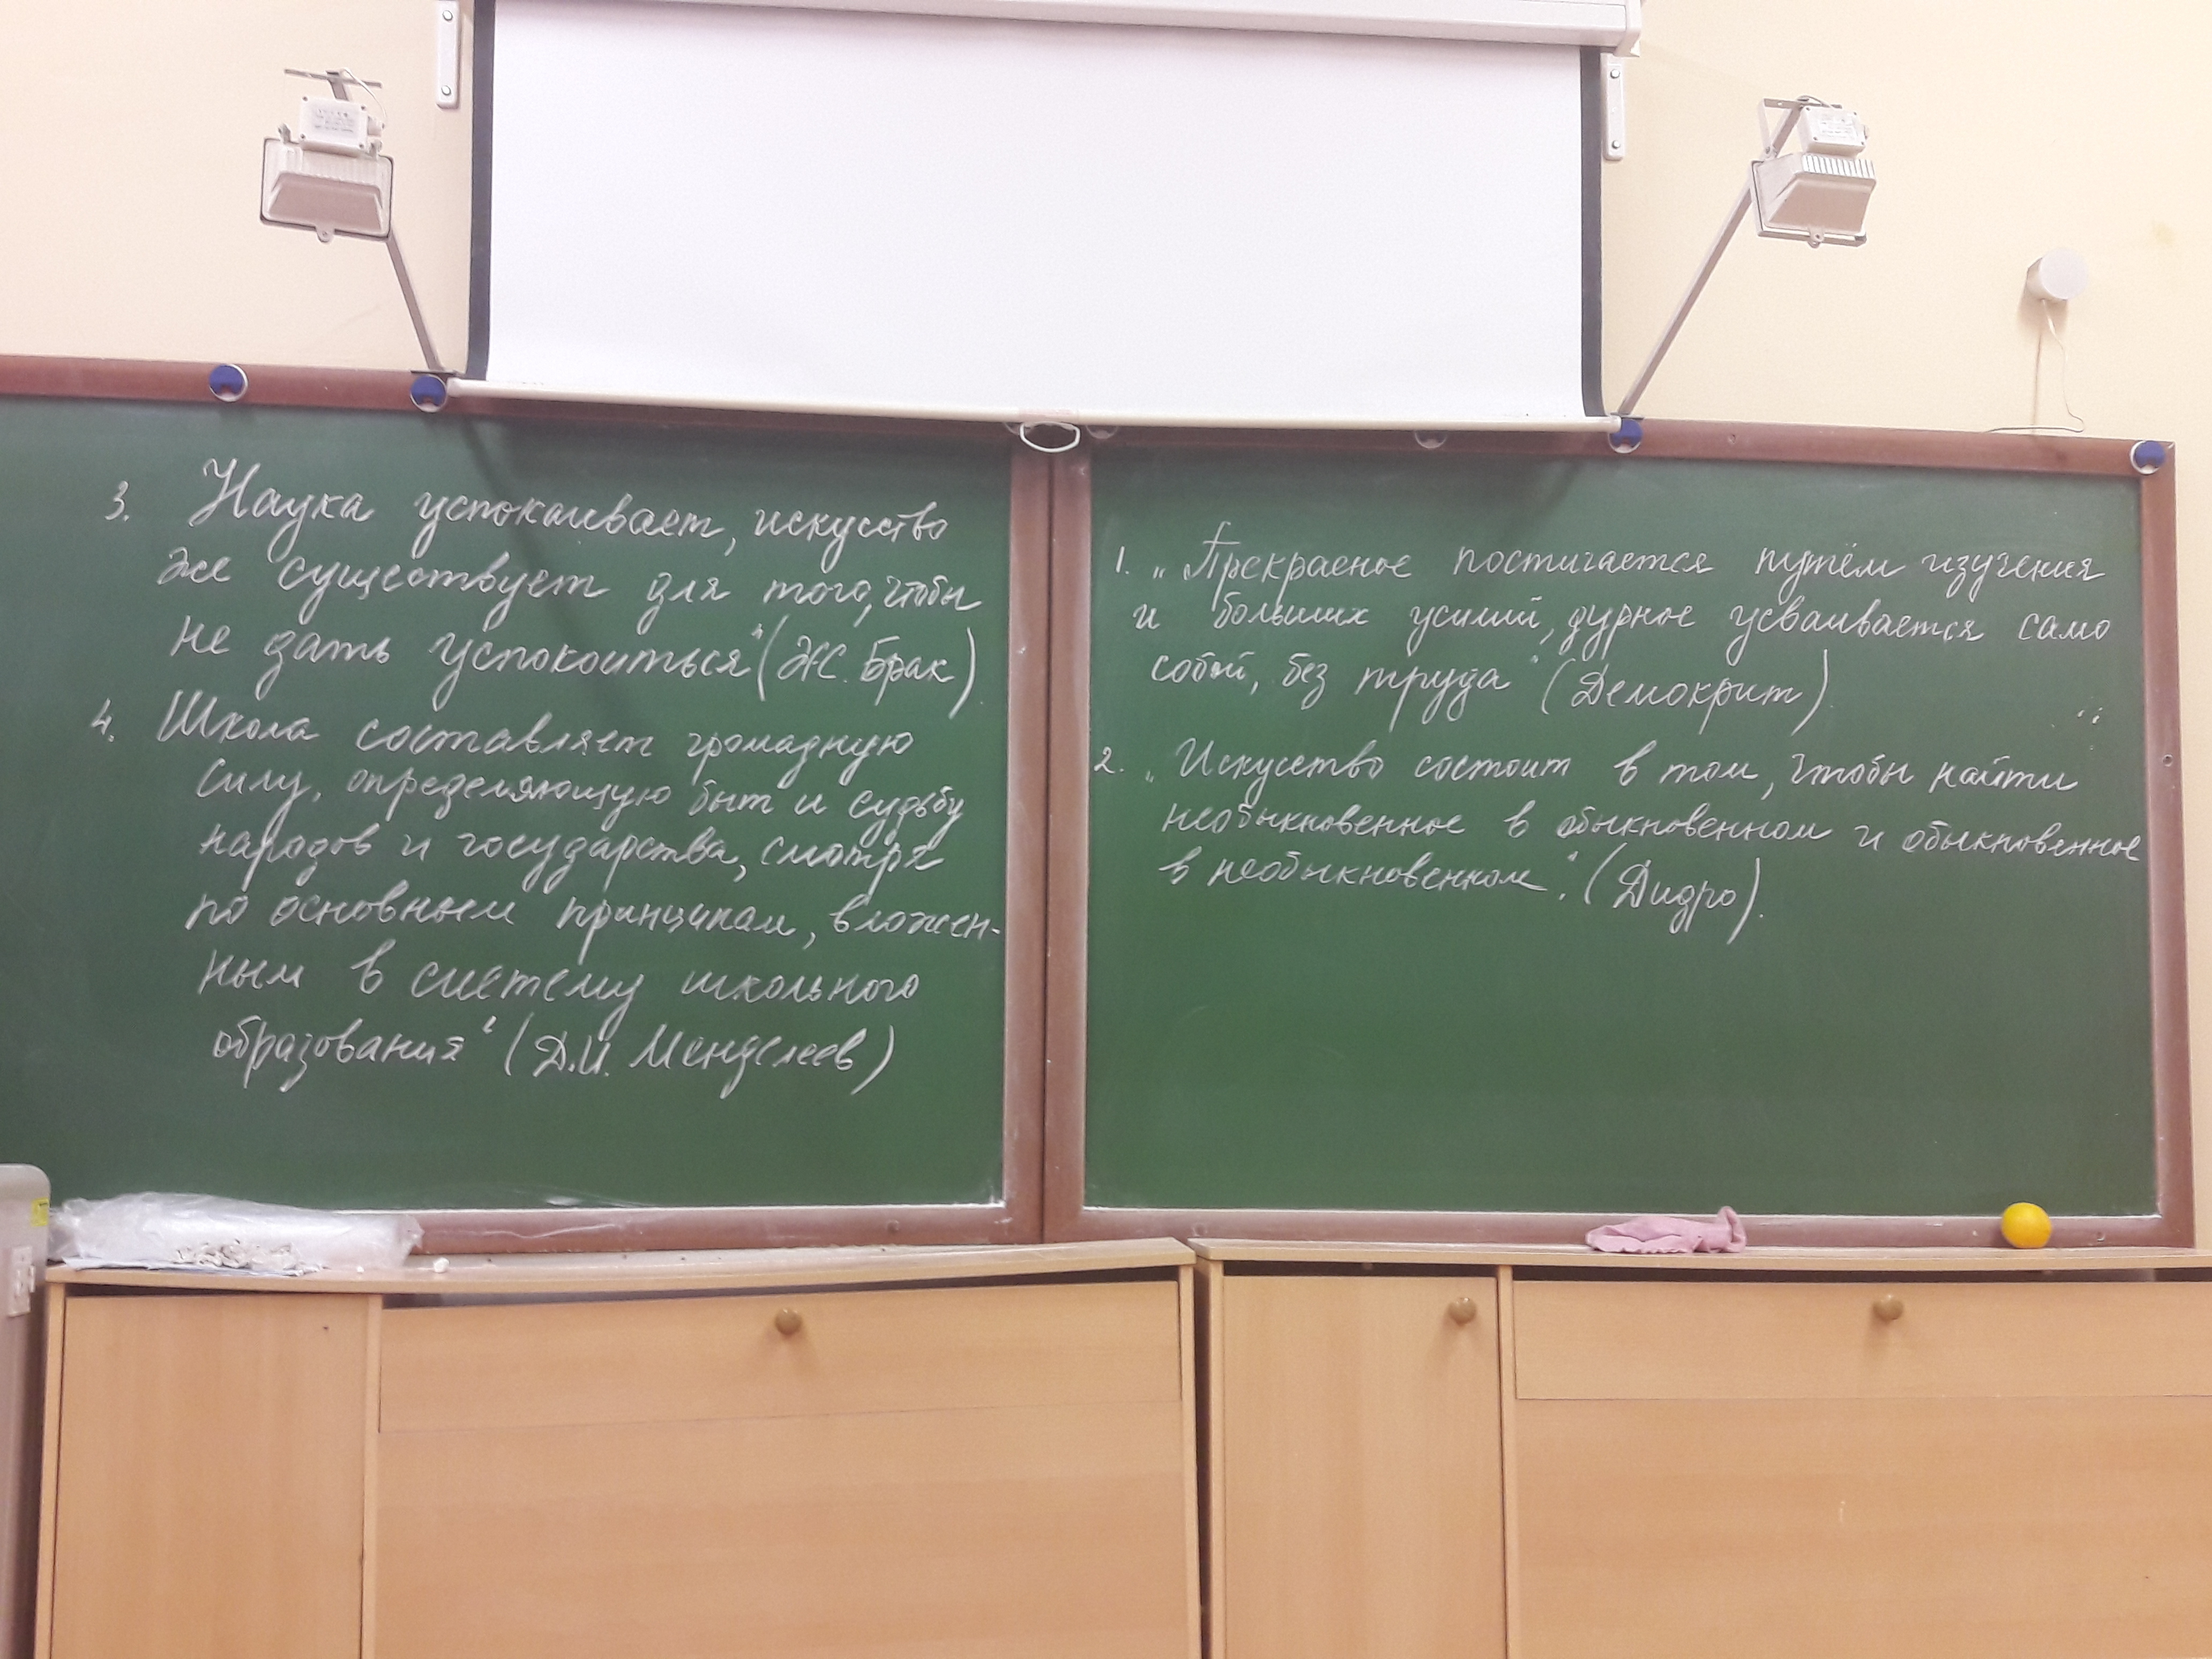 3. Наука успокаивает, искусство
же существует для того, чтобы
не дать успокоиться" (Ж. Брак).
4. Школа составляет громадную
силу, определяющую быт и судьбу
народов и государства, смотря
по основным принципам, вложен-
ным в систему школьного
образования" (Д.И. Менделеев)
1. „Прекрасное постигается путём изучения
и больших усилий, дурное усваивается само
собой, без труда" (Демокрит).
2. „Искусство состоит в том, чтобы найти
необыкновенное в обыкновенном и обыкновенное
в необыкновенном". (Дидро).